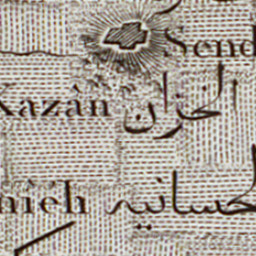 Send
Kazàn الخزان
nieh الحسانيه